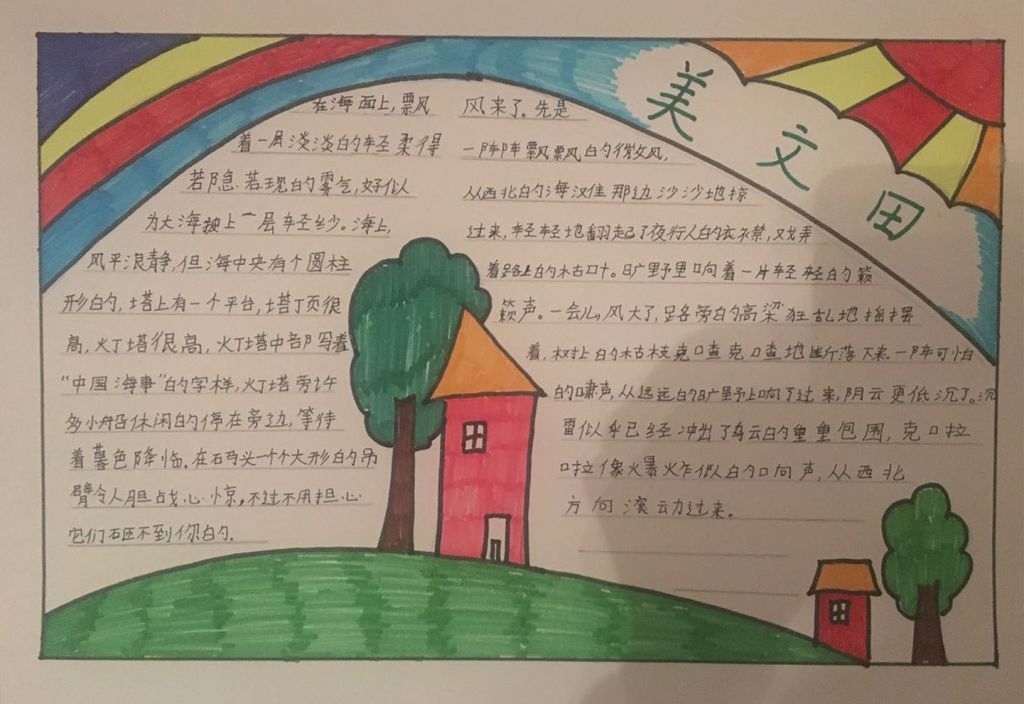 美文田
在海面上,飘风
着一层淡淡的轻柔得
若隐若现的雾气,好似
为大海披上一层轻纱。海上,
风平浪静,但海中央有个圆柱
形的,塔上有一个平台,塔顶很
高,灯塔很高,灯塔中部写着
“中国海事”的字样,灯塔旁许
多小船休闲的停在旁边,等待
着暮色降临.在码头一个个大形的吊
臂令人胆战心惊,不过不用担心
它们砸不到你的.
风来了。先是
一阵阵飘飘的微风,
从西北的海汊佳那边沙沙地掠
过来,轻轻地翻起了夜行人的衣襟,戏弄
着路上的枯叶。旷野里响着一片轻轻的簌
簌声。一会儿,风大了,路旁的高粱狂乱地摇摆
着,树上的枯枝克喳克喳地断落下来.一阵可怕
的啸声,从远远的旷野上响了过来,阴云更低沉了。沉
雷似乎已经冲出了乌云的重重包围,克啦
啦像爆炸似的响声,从西北
方向滚动过来。